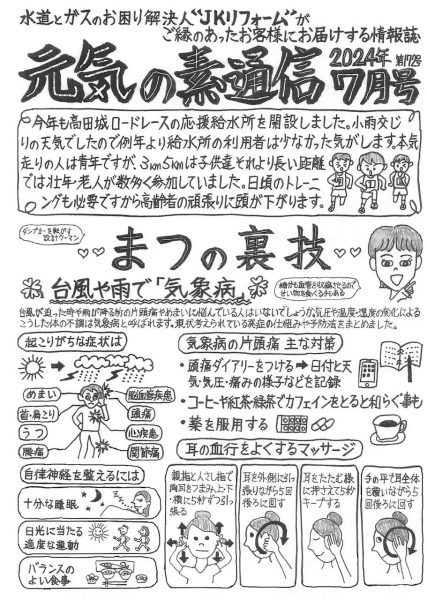 水道とガスのお困り解決人"JKリフォーム"が
ご縁のあったお客様にお届けする情報誌
元気の素通信 2024年 7月号 第172号
今年も高田城ロードレースの応援給水所を開設しました。小雨交じ
りの天気でしたので例年より給水所の利用者は少なかった気がします。本気
走りの人は青年ですが、3km5kmは子供達それより長い距離
では壮年・老人が数多く参加していました。日頃のトレーニ
ングも必要ですから高齢者の頑張りに頭が下がります。
ダンプカーを転がす
設計ウーマン
まつの裏技
台風や雨で「気象病」
台風が迫った時や雨が降る前の片頭痛やめまいに悩んでいる人はいないでしょうか。気圧や温度・湿度の変化による
こうした体の不調は気象病と呼ばれます。現状考えられている発症の仕組みや予防法をまとめました。
起こりがちな症状は
めまい
首・肩こり
うつ
腰痛
脳血管疾患
頭痛
心疾患
関節痛
気象病の片頭痛 主な対策
・頭痛ダイアリーをつける→日付と天
気・気圧・痛みの様子などを記録
・コーヒーや紅茶・緑茶でカフェインをとると和らぐ事も
・薬を服用する
耳の血行をよくするマッサージ
自律神経を整えるには
十分な睡眠
日光に当たる
適度な運動
バランスの
よい食事
親指と人さし指で
両耳をつまみ上・下
・横に5秒ずつ引っ
張る
耳を外側に引っ
張りながら5回
後ろに回す
耳をたたむ様
に押さえて5秒
キープする
手の平で耳全体
を覆いながら5
回後ろに回す